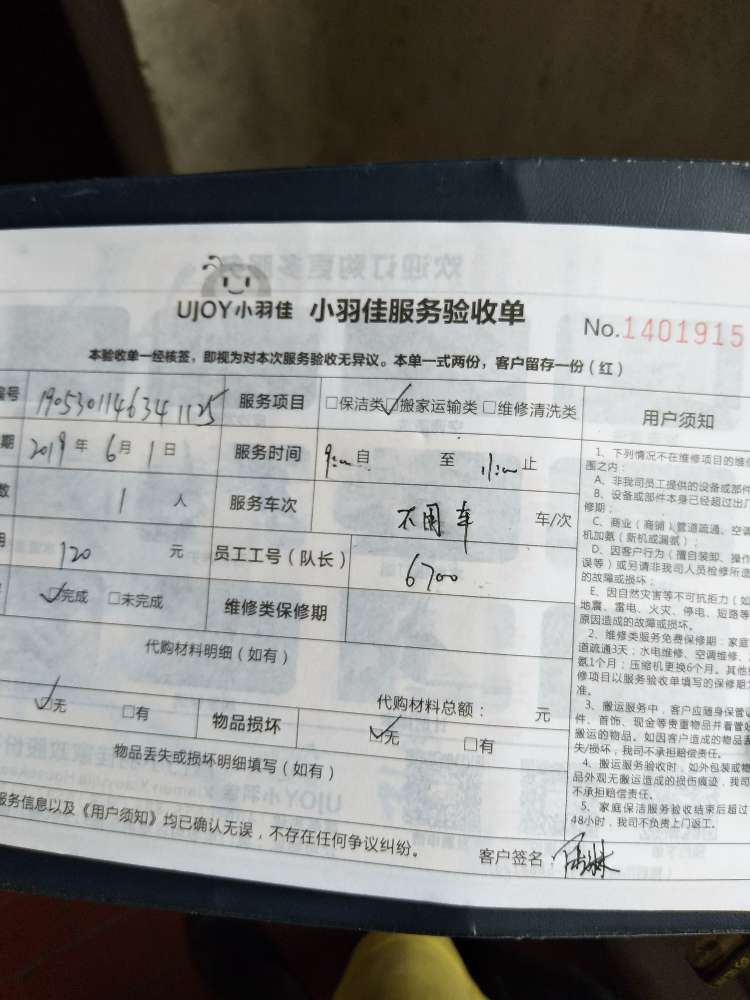 UJOY小羽佳 小羽佳服务验收单
No.1401915
本验收单一经核签，即视为对本次服务验收无异议。本单一式两份，客户留存一份（红）
编号 190530114634 1125 服务项目 □保洁类 ☑搬家运输类 □维修清洗类 用户须知
期 2019 年 6 月 1 日 服务时间 9:00 自 至 11:00 止
数 1 人 服务车次 不用车 车/次
用 120 元 员工工号（队长） 6700
☑完成 □未完成 维修类保修期
代购材料明细（如有）
代购材料总额： 元
☑无 □有 物品损坏 ☑无 □有
物品丢失或损坏明细填写（如有）
服务信息以及《用户须知》均已确认无误，不存在任何争议纠纷。
客户签名：
1、下列情况不在维修项目的维修
围之内：
A、非我司员工提供的设备或部件
B、设备或部件本身已经超过出厂
修期；
C、商业（商铺）管道疏通、空调
机加氨（新机或漏氨）；
D、因客户行为（擅自装卸、操作
误等）或另请非我司人员检修所造
的故障或损坏；
E、因自然灾害等不可抗拒力（如
地震、雷电、火灾、停电、短路等
原因造成的故障或损坏。
2、维修类服务免费保修期：家庭
道疏通3天；水电维修、空调维修、
氨1个月；压缩机更换6个月。其他
修项目以服务验收单填写的保修期
准。
3、搬运服务中，客户应随身保管
件、首饰、现金等贵重物品并看管
搬运的物品。如因客户造成的物品
失/损坏，我司不承担赔偿责任。
4、搬运服务验收时，如外包装或物
品外观无搬运造成的损伤痕迹，我司
不承担赔偿责任。
5、家庭保洁服务验收结束后超过
48小时，我司不负责上门返工。